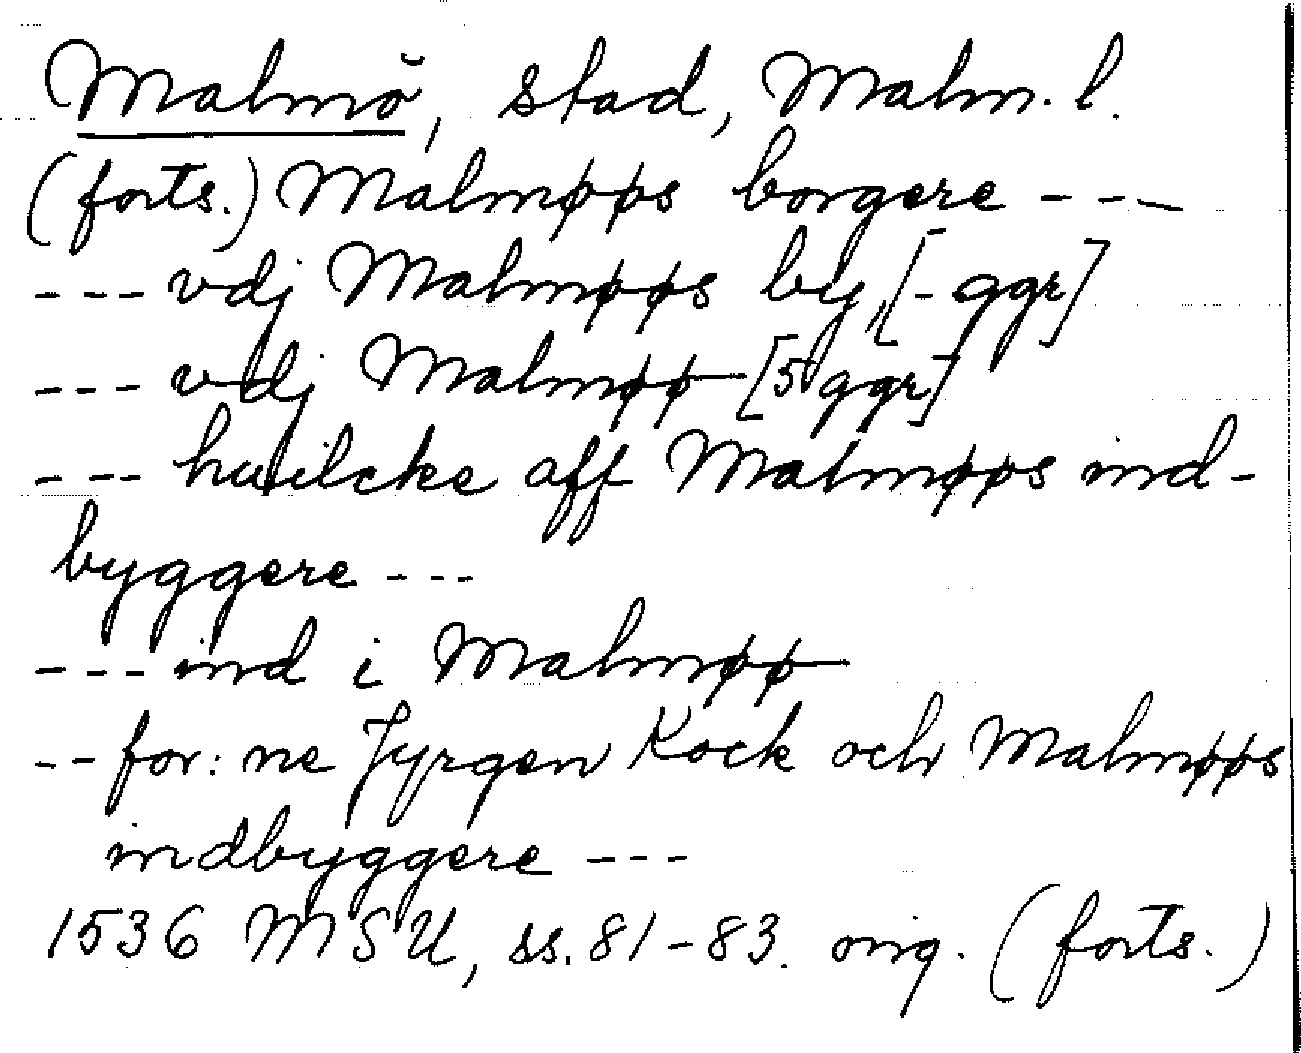 Malmö, stad, Malm. l.
(forts.) Malmøøs borgere ---
--- vdj Malmøøs by, [- ggr]
--- vdj Malmøø [5 ggr]
--- huilcke aff Malmøøs ind-
byggere ---
--- ind i Malmøø
-- for: ne Jyrgen Kock och Malmøøs
indbyggere ---
1536 MSU, ss. 81-83. orig. (forts.)